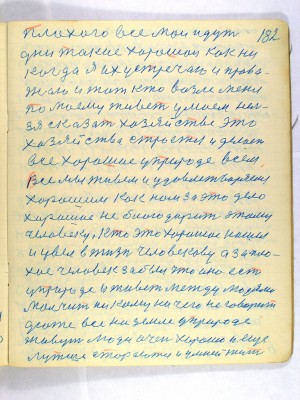 182
плохого все мои идут
дни такие хорошои как ни
когда я их устречаю и права-
жаю и тот кто возле меня
по моему живет умоем нел-
зя сказат хозяйстве это
хазяйства строетси и делает
все хорошие уприроде всем
Все мы живем и удовлетваряемся
хорошим как нам за это дело
харошае не благодарит этаму
человеку. Кто это харошае нашел
и увел в жизн человекову а запло-
хое человек забыл это ано ест
уприроде и живет между людями
молчит никаму ничего не говорит
делаже все на земле уприроде
живут люди очен хорошо и еще
лутше стораются и умней жит